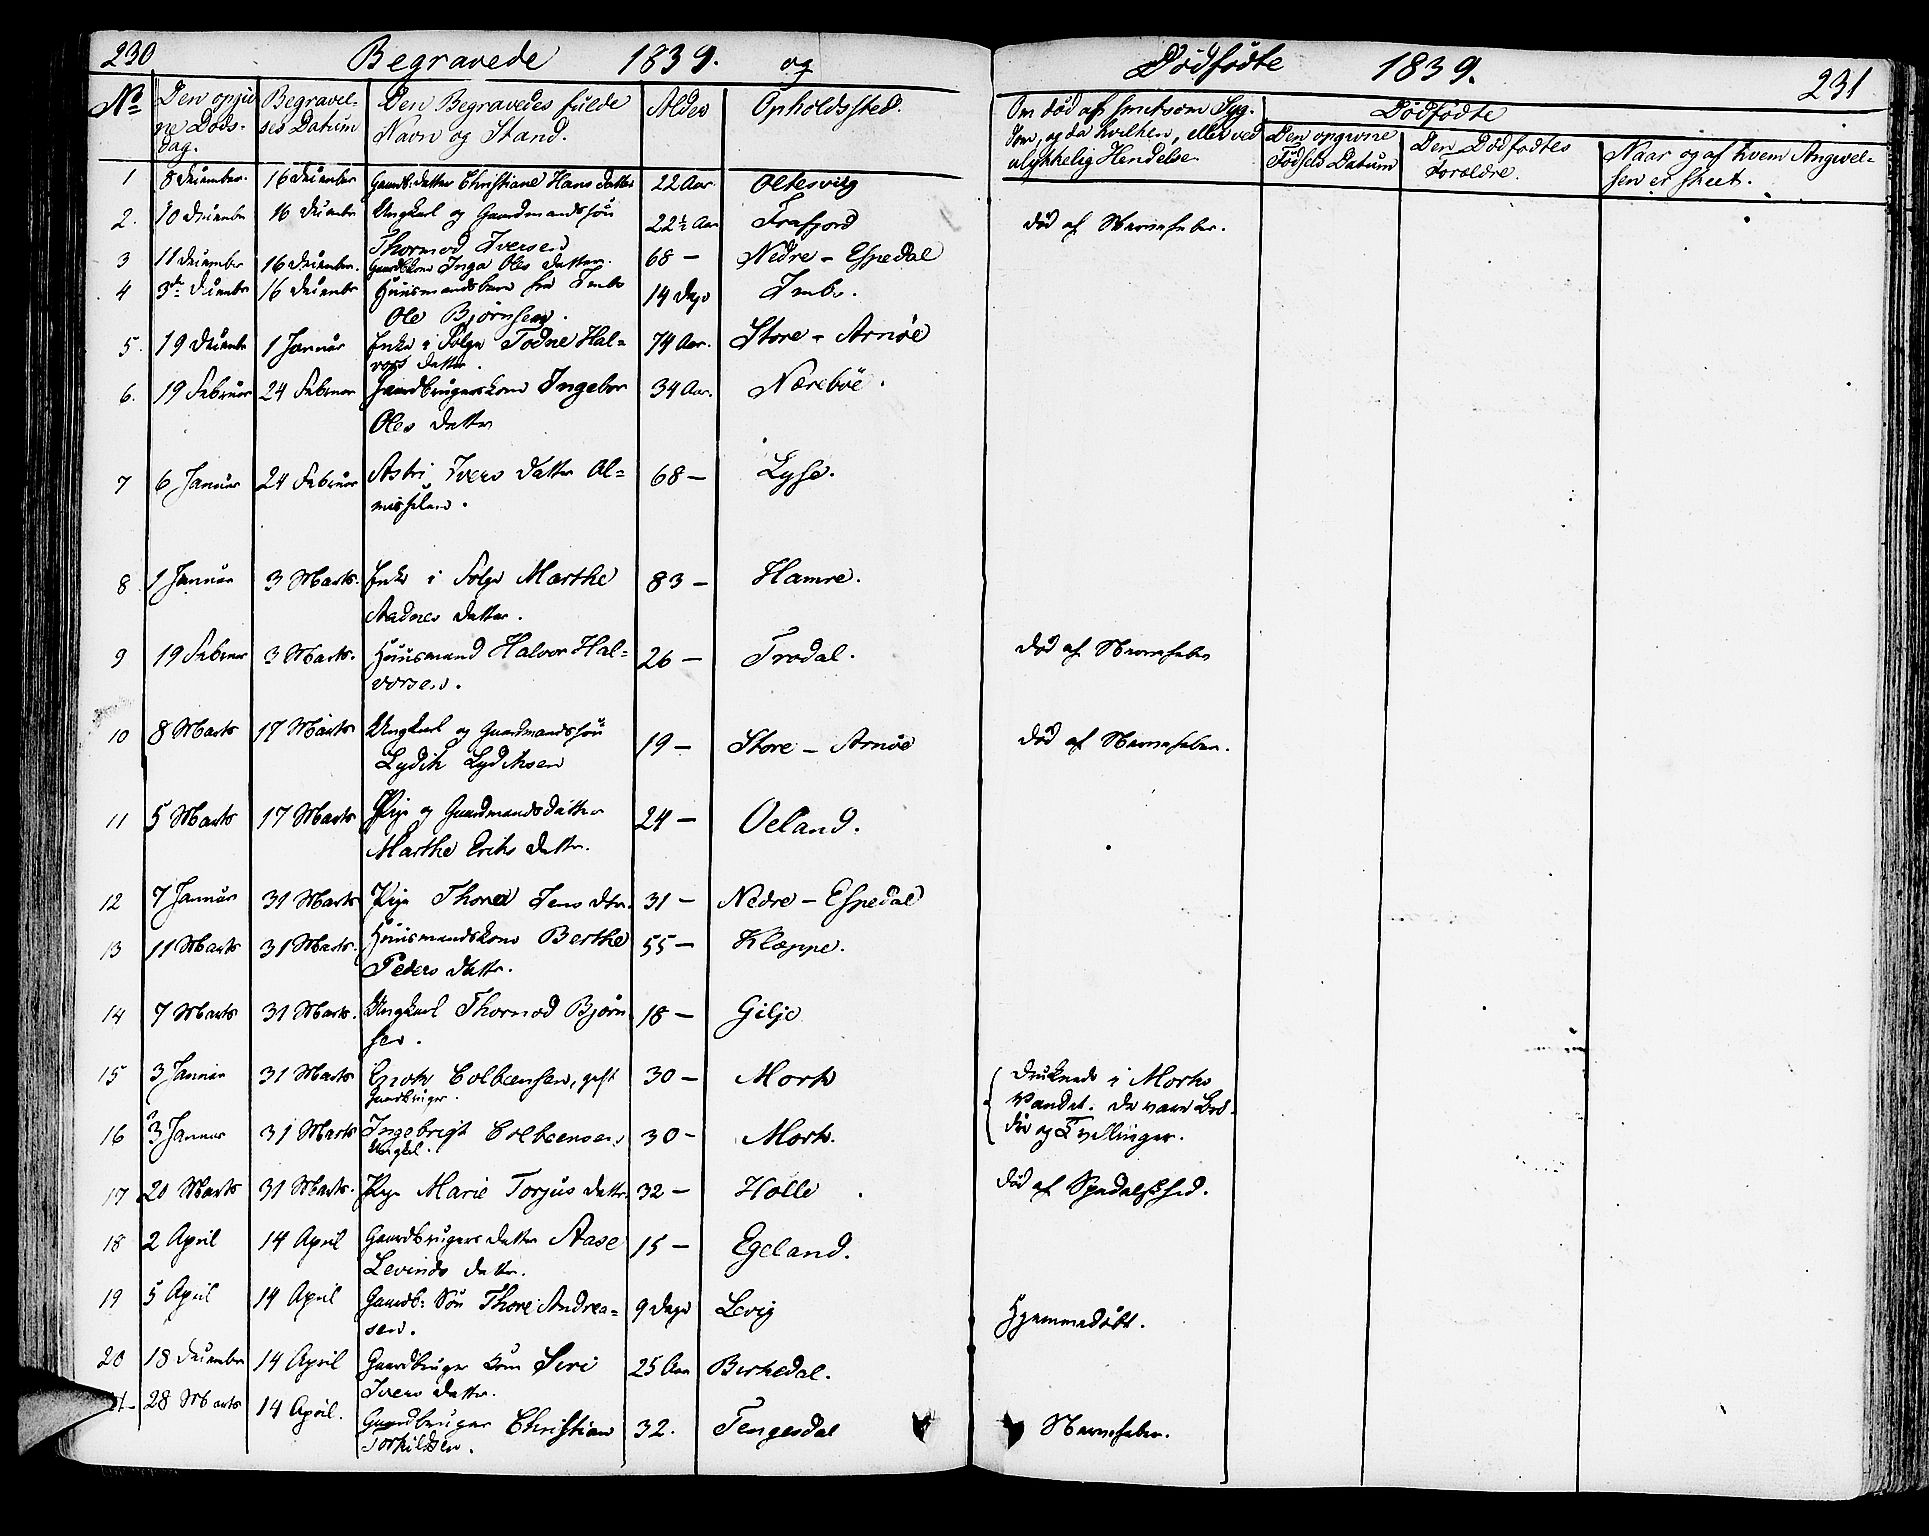 230 Begravede 1839. og Dödfödte 1839. 231
No Den opgivne Döds-dag. Begravelses Datum Den Begravedes fulde Navn og Stand. Alder Opholdssted. Om död af smitsom Sygdom, og da hvilken, eller ved ulykkelig Hendelse Dödfödte
Den opgivne Födsels Datum Den Dödfödtes Forældre. Naar og af hvem Angivelsen er skeet.
1 8 December. 16 December Gaardb: datter Christiane Hans datter 22 Aar. Oltesvig
2. 10 December 16 December Ungkarl og Gaardmandssön 22½ Aar Frafjord död af Nervefeber.
Thormod Iversen
3 11 December 16 December. Gaardbkone Inga Oles datter. 68 — Nedre-Espedal
4 3die December 16 December Huusmandsbarn fra Imbs 14 Dage Imbs.
Ole Björnsen.
5. 19 December 1 Januar Enke i Folge Todne Hal= 74 Aar. Store-Arnöe
vors datter.
6. 19 Februar 24 Februar Gaardbrugerkone Ingebor 34 Aar. Næreböe.
Oles datter
7 6 Januar 24 Februar Astri Ivers datter Al= 68 — Lyse.
misselem.
8 1 Januar 3 Marts. Enke i Folge Marthe 83 — Hamre.
Aadnes datter.
9 19 Februar 3 Marts. Huusmand Halvor Hal= 26 — Frodal. död af Nervefeber
vorsen.
10 8 Marts 17 Marts Ungkarl og Gaardmandssön 19 — Store-Arnöe död af Nervefeber.
Lydik Lydiksen
11 5 Marts 17 Marts Pige og Gaardmandsdatter 24 — Oeland.
Marthe Eriks datter.
12 7 Januar 31 Marts Pige Thorea Jens dtr. 31 — Nedre-Espedal
13 11 Marts 31 Marts. Huusmandskone Berthe 55 — Klæppe.
Peders datter.
14 7 Marts 31 Marts. Ungkarl Thormod Björn 18 — Gilje
sen.
15 3 Januar 31 Marts Enok Colbeensen, gift 30 — Mork Druknede i Morke
Gaardbruger. Vandet. De vare Brö-
16 3 Januar 31 Marts Ingebrigt Colbeensen 30 — Mork. dre og Tvellinger.
Ungkl.
17 20 Marts 31 Marts. Pige Marie Torjus datter 32 — Holle död af Spedalskhed.
18 2 April 14 April Gaardbrugers datter Aase 15 — Egeland.
Levinds datter.
19 5 April 14 April Gaardb: Sön Thore Andrea= 9 Dage Levig Hjemmedöbt.
sen.
20 18 December 14 April Gaardbruger kone Siri 25 Aar Birkedal.
Ivers datter.
21 28 Marts 14 April. Gaardbruger Christian 32. Tengesdal Nervefeber.
Torkildsen.